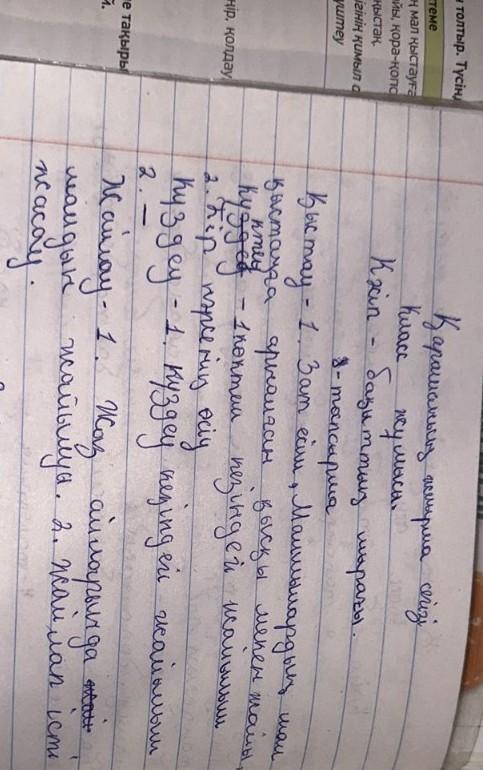 толтыр. Түсінд
стеме
н мал қыстауға
йы, қора-қопс
қыстақ.
ігінің қимыл а
үштеу
нір, қолдау
е тақыры
й.
Қарашаның жиырма сегізі
Класс жұмысы.
Кәсіп - бақыттың шырағы.
8-тапсырма
Қыстау - 1. Зат есім, Малшылардың, мал
қыстауға арналған қысқы мекен жайы,
Көктеу - 1 көктем кезіндегі жайылым
2. бір нәрсенің өсіу
Күздеу - 1. Күздеу кезіндегі жайылым
2. —
Жайлау - 1. Жаз айларында
малдың жайылуы. 2. Жайлап істі
жасау.